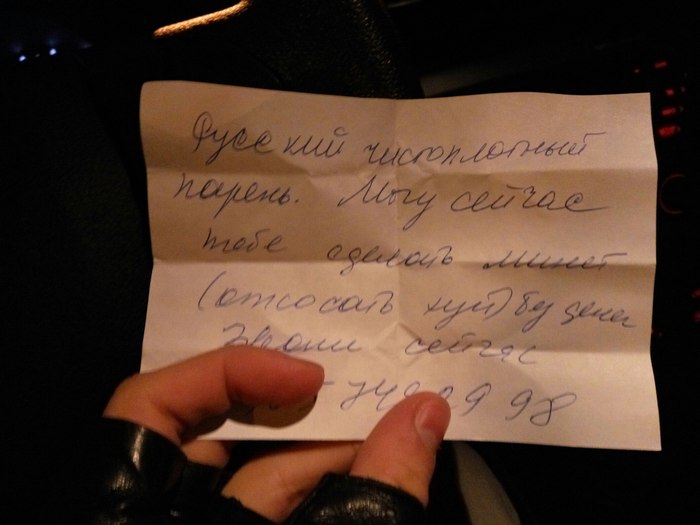 Русский чистоплотный
парень. Могу сейчас
тебе сделать минет
(отсосать хуй) без денег
Звони сейчас
74 29 98